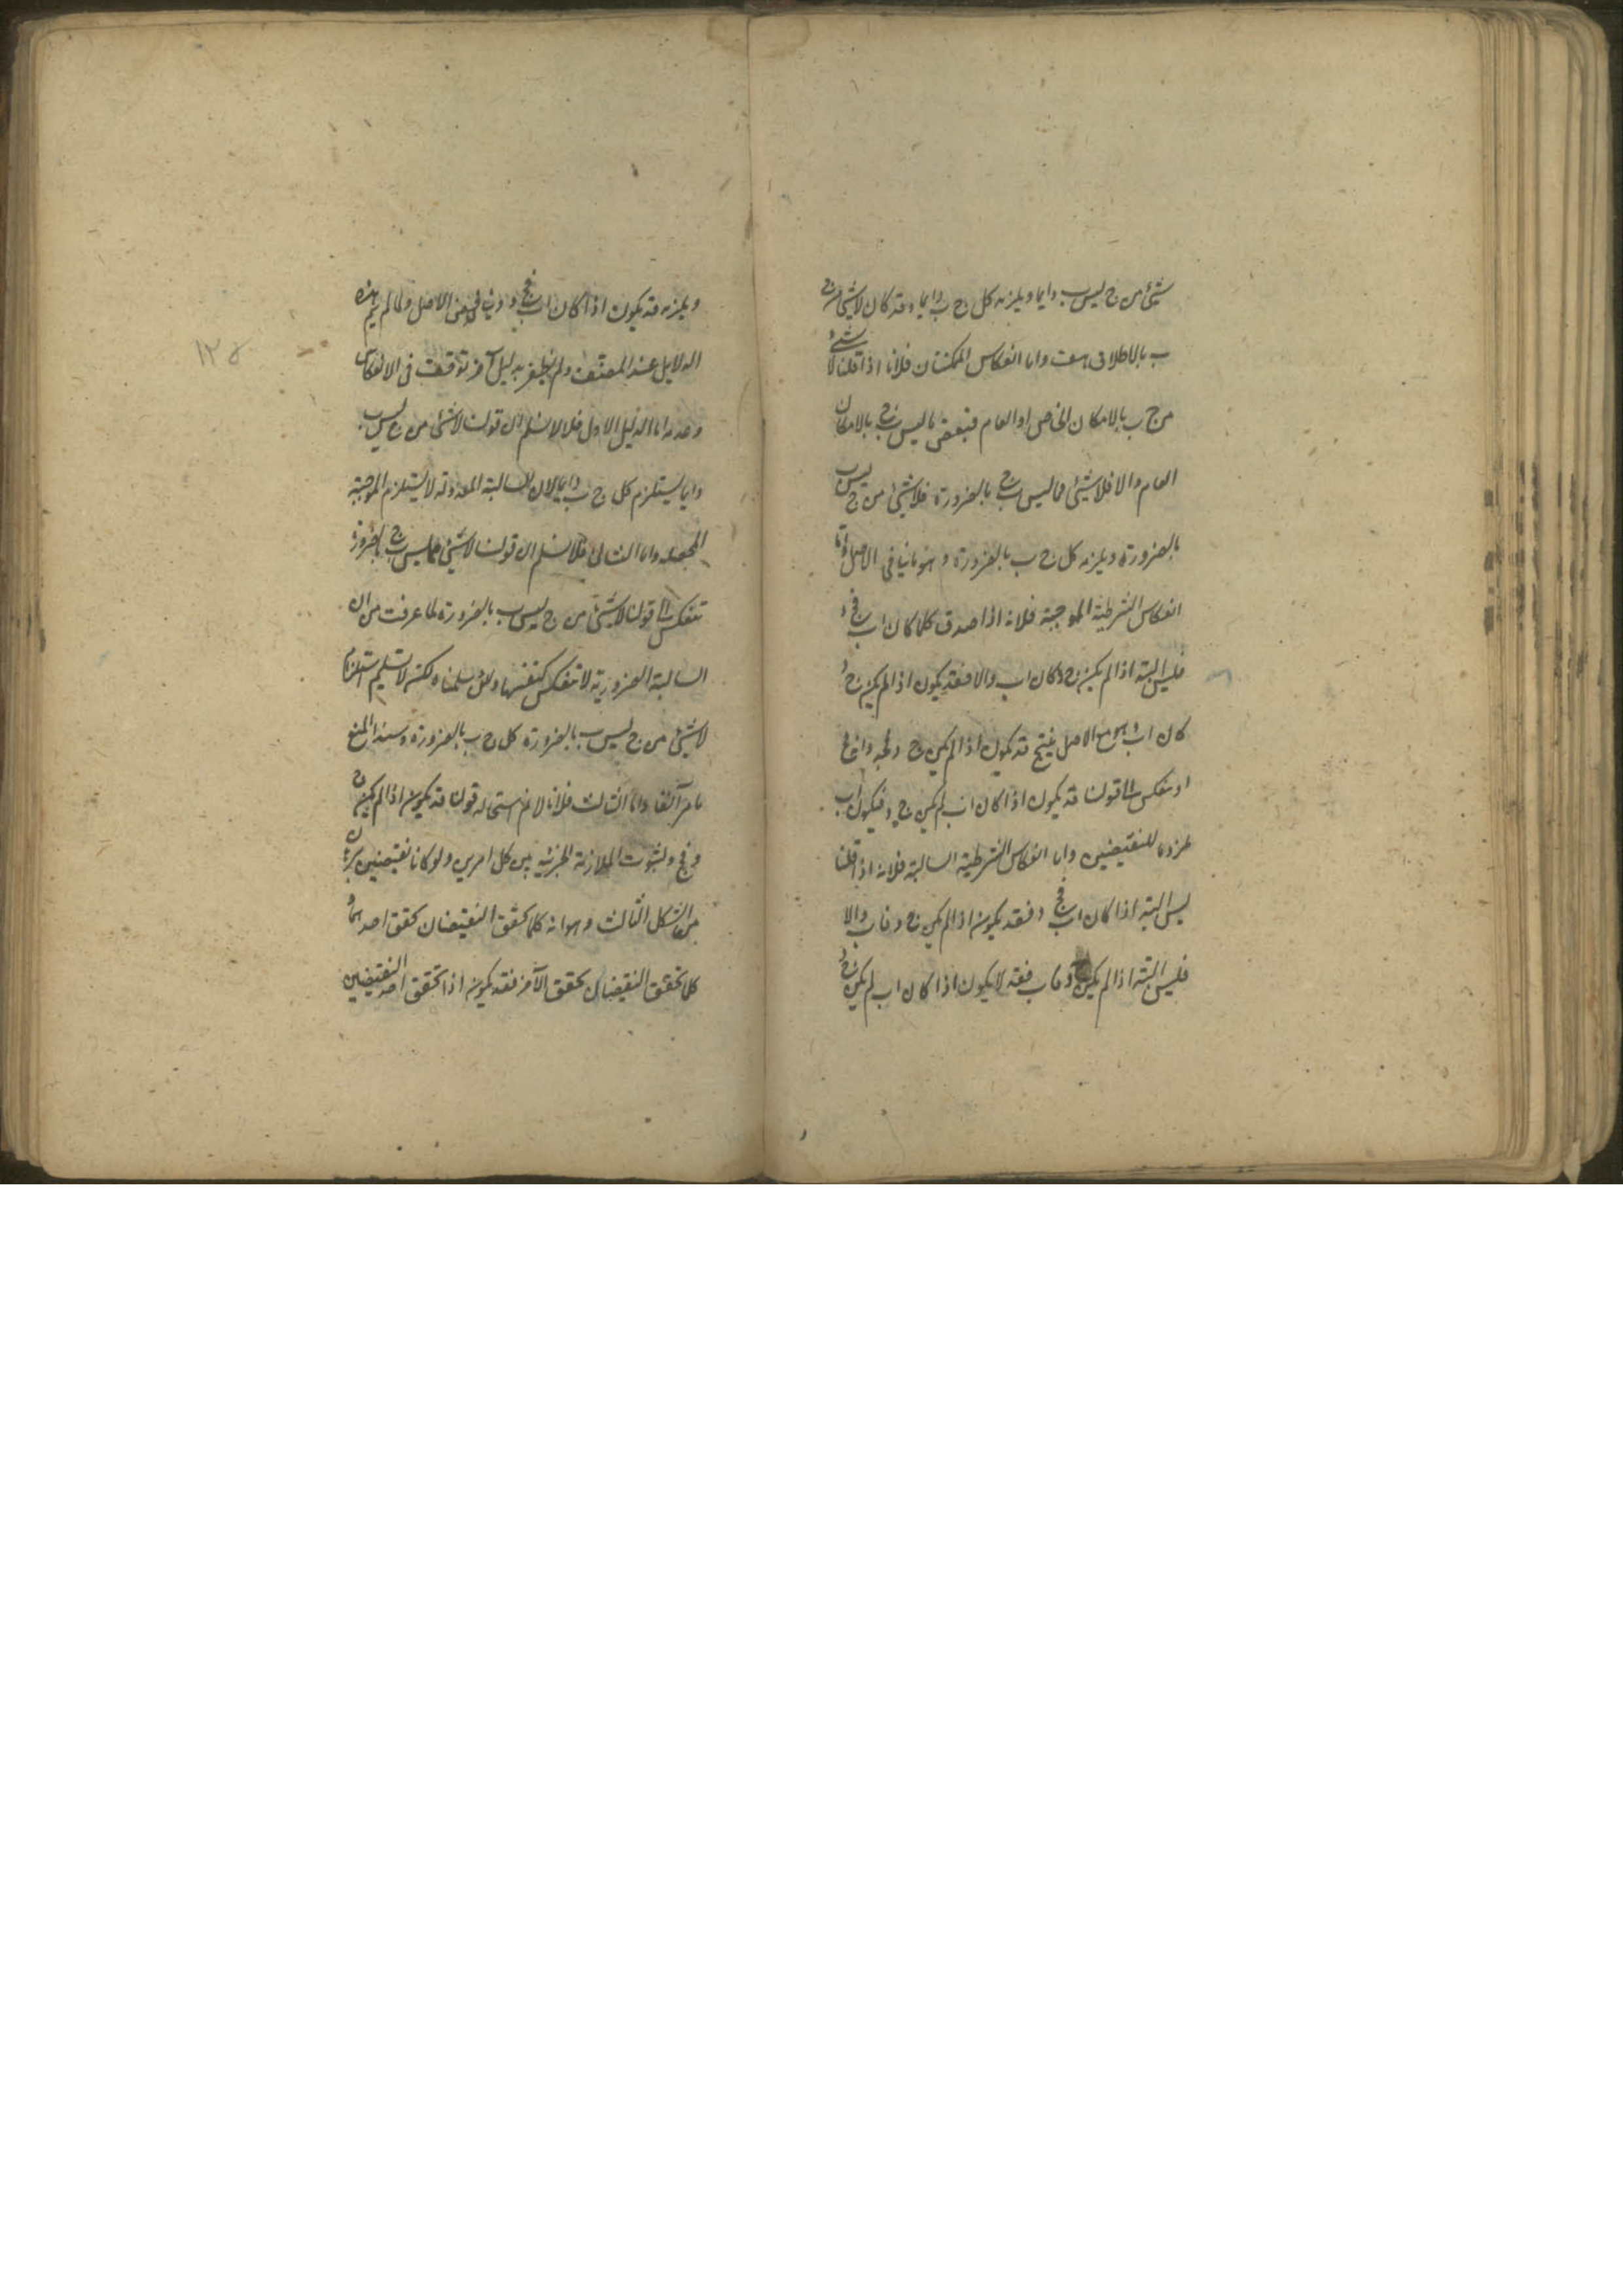 شيئ من ج ليس ب دايما ويلزمه كل ج ب دايما وقد كان لا شيئ من ج
ب بالاطلاق هف واما انعكاس الممكنتان فلانا اذا قلنا لا شيئ
من ج ب بالامكان الخاص او العام فبعض ما ليس ب ج بالامكان
العام والا فلا شيئ مما ليس ب ج بالضرورة فلا شيئ من ج ليس ب
بالضرورة ويلزمه كل ج ب بالضرورة وهو ينافى الاصل واما
انعكاس الشرطية الموجبة فلانه اذا صدق كلما كان ا ب فج د
فليس البتة اذا لم يكن ج د كان ا ب والا فقد يكون اذا لم يكن ج د
كان ا ب وهو مع الاصل ينتج قد يكون اذا لم يكن ج د فج د وانه مح
او ينعكس الى قولنا قد يكون اذا كان ا ب لم يكن ج د فيكون ا ب
ملزوما للنقيضين واما انعكاس الشرطية السالبة فلانه اذا قلنا
ليس البتة اذا كان ا ب فج د فقد يكون اذا لم يكن ج د فا ب والا
فليس البتة اذا لم يكن ج د فا ب فقد لا يكون اذا كان ا ب لم يكن ج د
١٢٥
ويلزمه قد يكون اذا كان ا ب فج د وينافى الاصل ولما لم يتم هذه
الدلايل عند المصنف ولم يظفر بدليل آخر توقف فى الانعكاس
وعدمه اما الدليل الاول فلانا لا نسلم ان قولنا لا شيئ من ج ليس ب
دايما يستلزم كل ج ب دايما لان السالبة المعدولة لا يستلزم الموجبة
المحصله واما الثانى فلا نسلم ان قولنا لا شيئ مما ليس ب ج بالضرورة
تنعكس الى قولنا لا شيئ من ج ليس ب بالضرورة لما عرفت من ان
السالبة الضرورية لا تنعكس كنفسها ولئن سلمناه لكن لا نسلم استلزام
لا شيئ من ج ليس ب بالضرورة كل ج ب بالضرورة وسند المنع
ما مر آنفا واما الثالث فلانا لا نم استحاله قولنا قد يكون اذا لم يكن ج
د فج د لثبوت الملازمة الجزئيه بين كل امرين ولو كانا نقيضين ببرهان
من الشكل الثالث وهو انه كلما تحقق النقيضان تحقق احدهما و
كلما تحقق النقيضان تحقق الآخر فقد يكون اذا تحقق احد النقيضين